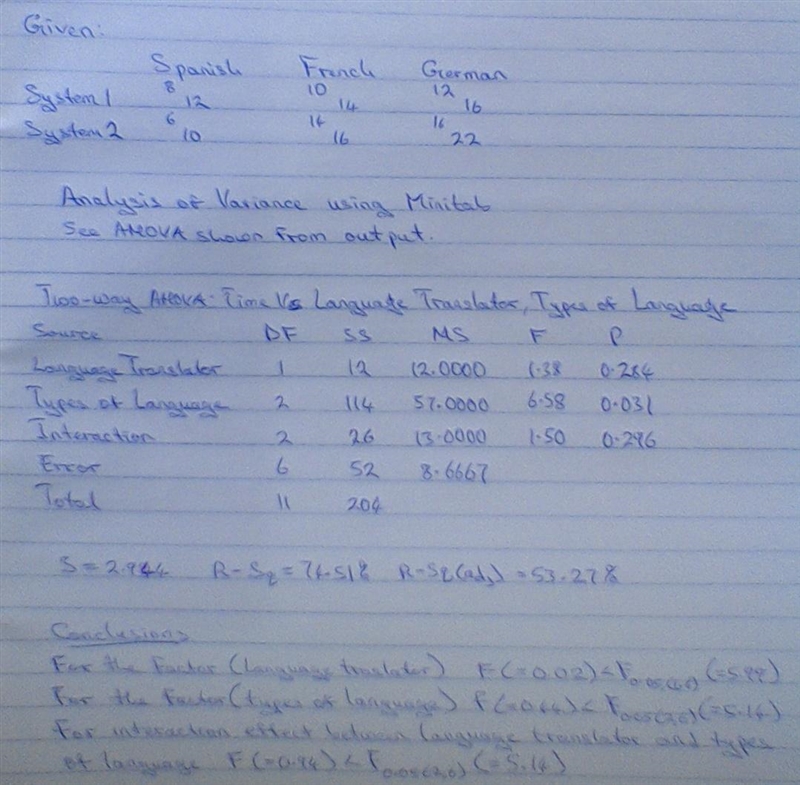 Given:
Spanish French German
System 1 8 12 10 14 12 16
System 2 6 10 14 16 16 22
Analysis of Variance using Minitab
See ANOVA shown from output.
Two-way ANOVA: Time Vs Language Translator, Types of Language
Source DF SS MS F P
Language Translator 1 12 12.0000 1.38 0.284
Types of Language 2 114 57.0000 6.58 0.031
Interaction 2 26 13.0000 1.50 0.296
Error 6 52 8.6667
Total 11 204
S = 2.944 R-Sq = 74.51% R-Sq(adj) = 53.27%
Conclusions
For the Factor (language translator) F(=0.02) < F0.05(1,6) (=5.99)
For the Factor (types of language) F(=0.64) < F0.05(2,6) (=5.14)
For interaction effect between language translator and types
of language F(=0.94) < F0.05(2,6) (=5.14)